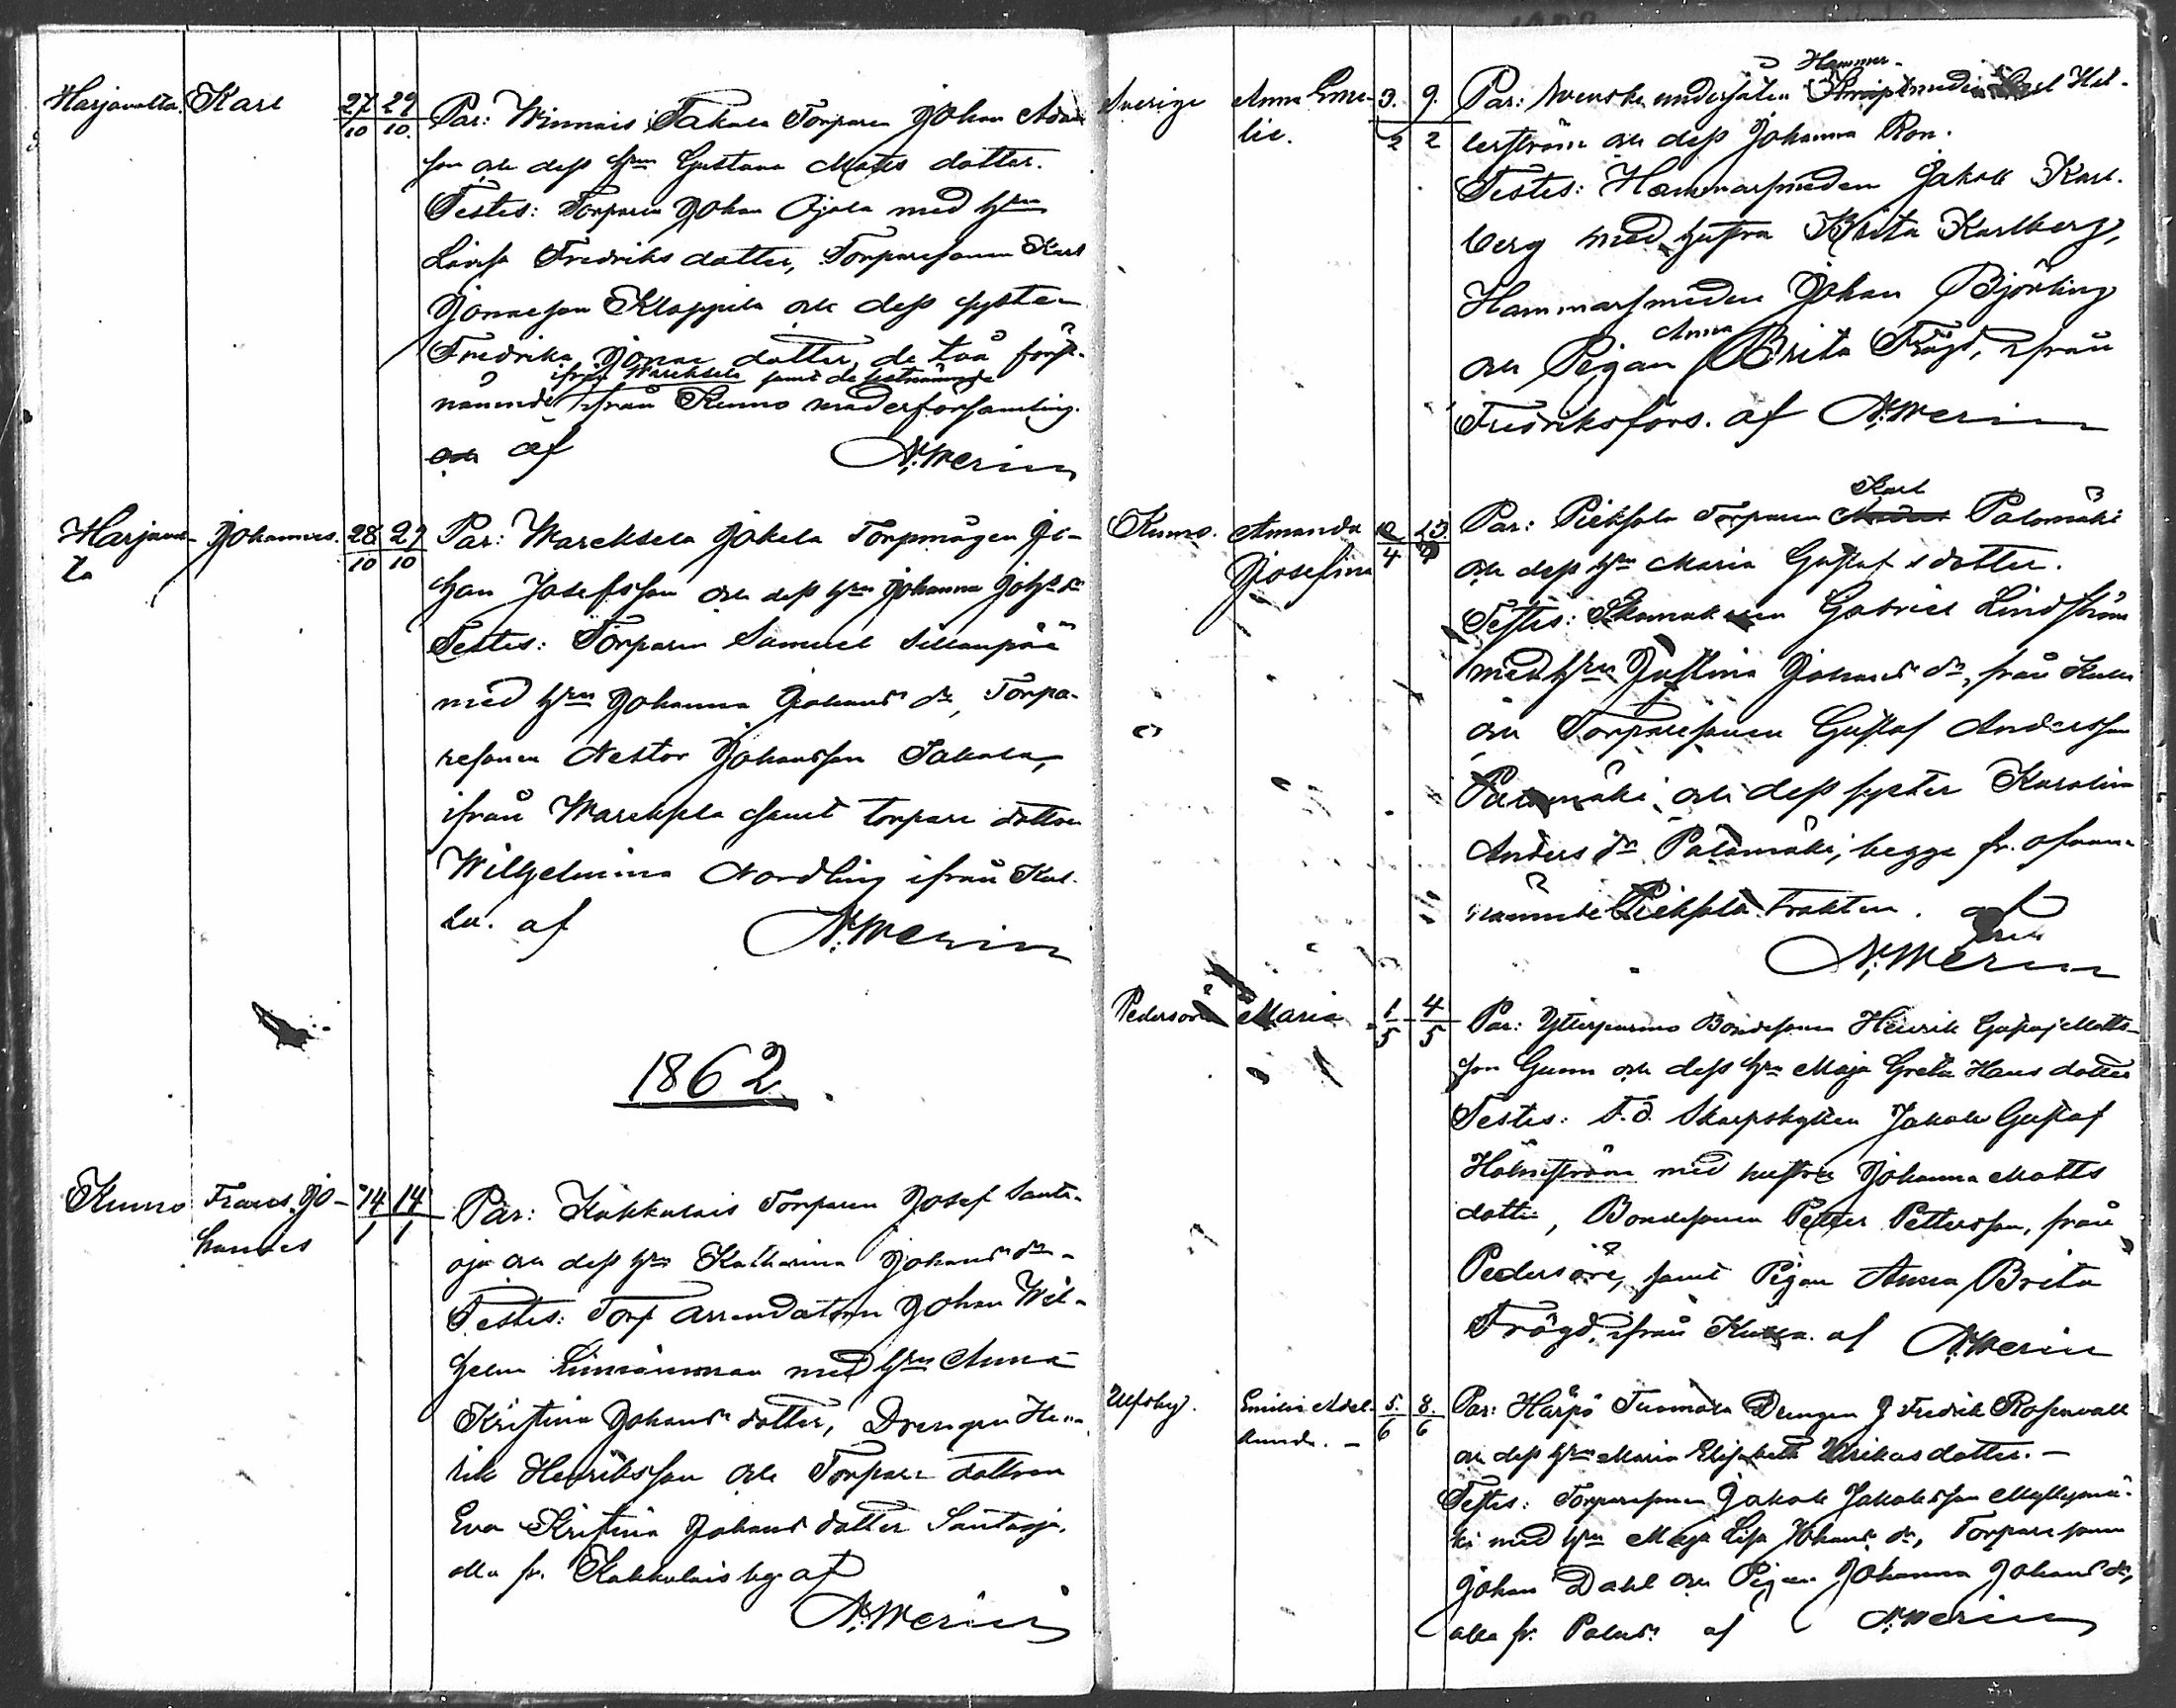 Harjavalta. Karl 27/10 29/10. Par: Winnais Takala Torparen Johan Adam
son och dess hru Gustava Matts dotter.
Testes: Torparen Johan Ojala med hru
Lovisa Fredriks dotter, Torparesonen Karl
Jonasson Klappila och dess syster
Fredrika Jonae dotter, de två först-
ifrån Wareksela samt de sistnämnde
nämnde ifrån Kumo moderförsamling.
och af N. Merin
Harjaval- Johannes. 28/10 29/10 Par: Wareksela Jakela Torpmågen Jo-
ta
han Josefsson och dess hru Johanna Johsdr
Testes: Torparen Samuel Sillanpää
med hru Johanna Johansdr, Torpa-
resonen Nestor Johansson Takala,
ifrån Wareksela samt torpare dottren
Wilhelmina Nordling ifrån Kul-
la. af N. Merin
1862.
Kumo Frans Jo- 14/1 14/1 Par: Kakkulais Torparen Josef Santa-
hannes
oja och dess hru Katharina Johans dr
Testes: Torp arrendatorn Johan Wil-
helm med hru Anna
Kristina Johans dotter, Drengen Hen-
rik Henriksson och Torpare dottren
Eva Kristina Johans dotter Santaoja,
alla fr. Kakkulais by af
N. Merin
Sverige Anna Eme- 3./2 9./2 Par: Svenska undersåten
Hammer-
lie.
lerström och dess Johanna Ron.
Testes: Hammarsmeden Jakob Karl-
berg med hustru Brita Karlberg,
Hammarsmeden Johan Björling
Anna
och Pigan Brita Frögd, ifrån
Fredriksfors. af N. Merin
Kumo. Amanda Par: Pieksola Torparen Palomäki
Karl
Josefina
och dess hru Maria Gustafs dotter.
Testes: Skomakaren Gabriel Lindström
med hru Justina Johans dr, från Kulla
och Torparesonen Gustaf Andersson
Palomäki och dess syster Karolina
Anders dr Palomäki, begge fr. ofvan-
nämnde Pieksola trakten. af
N. Merin
Pedersöre Maria 1/5 4/5 Par: Ytterpurmo Bondesonen Henrik Gustaf Matts-
son Gunn och dess hru Maja Greta Hans dotter
Testes: F.d. Skarpskytten Jakob Gustaf
Holmström med hustru Johanna Matts
dotter, Bondesonen Petter Pettersson, från
Pedersöre, samt Pigan Anna Brita
Frögd, ifrån Kulla. af N. Merin
Ulfsby. Emilia Adel- 5./6 8./6 Par: Härpö Tuomola Drengen J Fredrik Rosenvall
kunda.
och dess hru Maria Elisabeth Ulrikas dotter.
Testes: Torparesonen Jakob Jakobsson Myllymä-
ki med hru Maja Lisa Johans dr, Torparesonen
Johan Dahl och Pigan Johanna Johans dr,
alla fr. Palus. af N. Merin